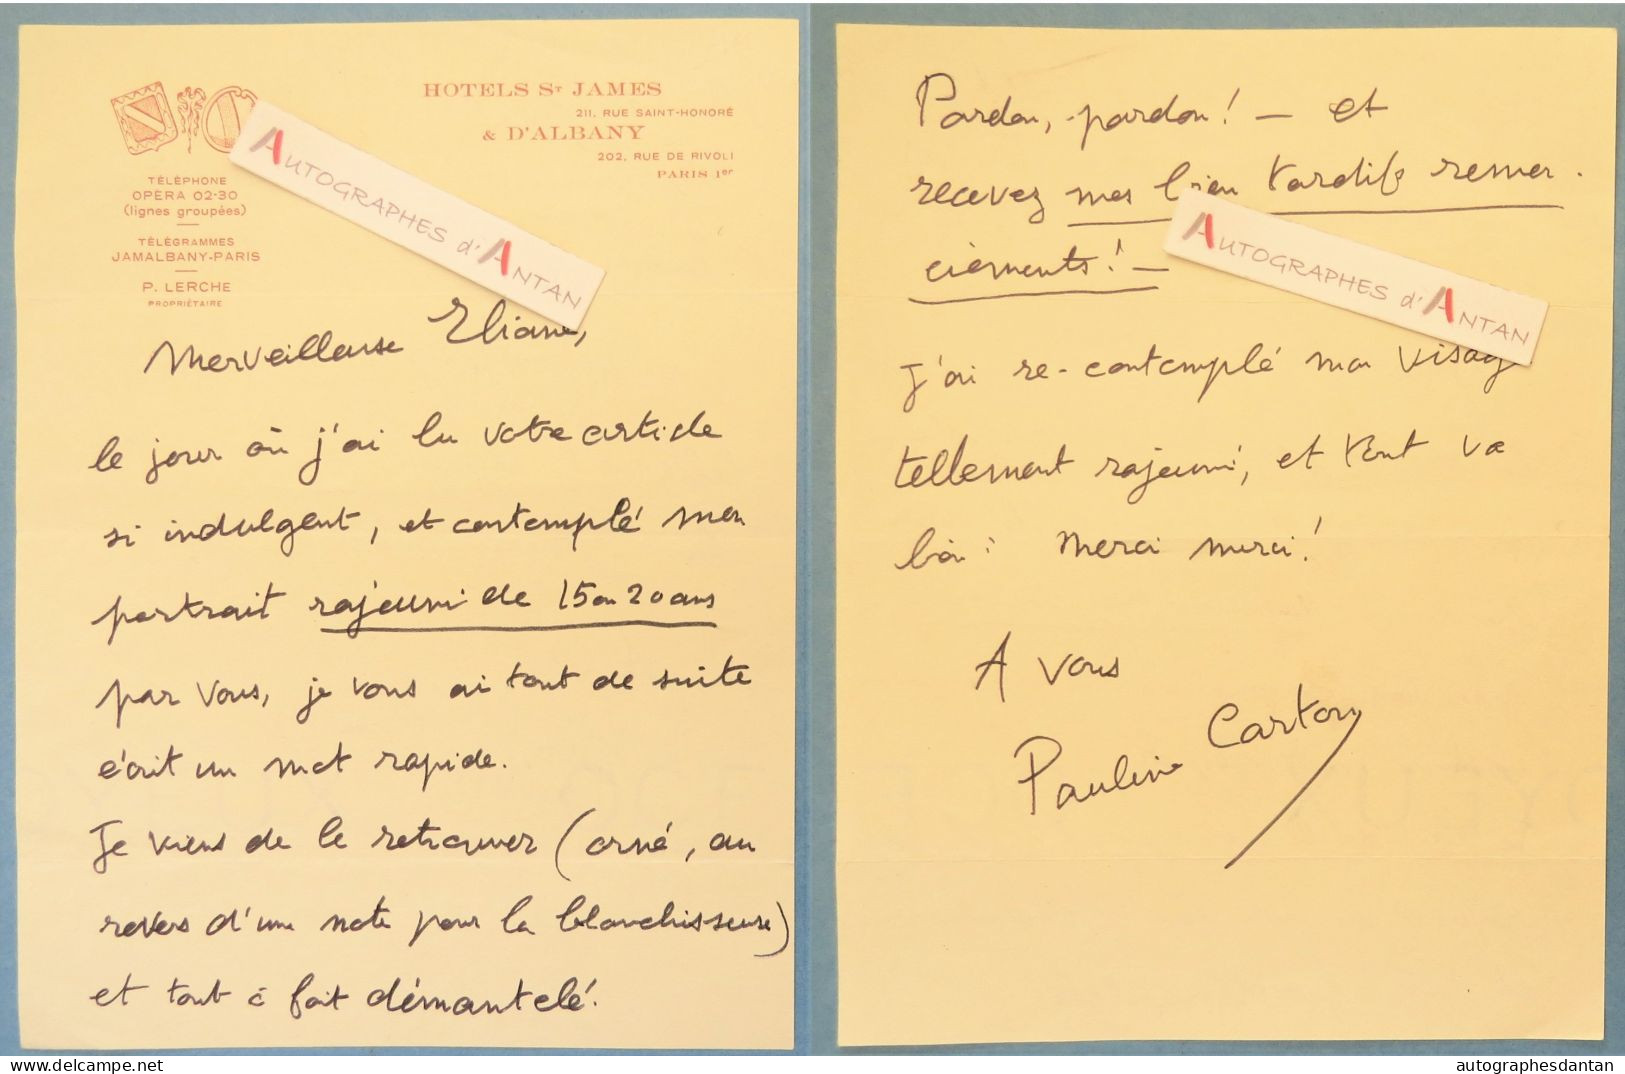 HOTELS ST JAMES
211, RUE SAINT-HONORÉ
& D'ALBANY
202, RUE DE RIVOLI
PARIS 1er
TÉLÉPHONE
OPÉRA 02-30
(lignes groupées)
TÉLÉGRAMMES
JAMALBANY-PARIS
P. LERCHE
PROPRIÉTAIRE
AUTOGRAPHES d'ANTAN
Merveilleuse Eliane,
le jour où j'ai lu votre article
si indulgent, et contemplé mon
portrait rajeuni de 15 ou 20 ans
par vous, je vous ai tout de suite
écrit un mot rapide.
Je viens de le retrouver (orné, au
revers d'une note pour la blanchisseuse)
et tout à fait démantelé.
Pardon, pardon! – et
recevez mes bien tardifs remer-
ciements! –
AUTOGRAPHES d'ANTAN
J'ai re-contemplé mon visage
tellement rajeuni, et tout va
bien : merci merci!
A vous
Pauline Carton
delcampe.net
autographesdantan